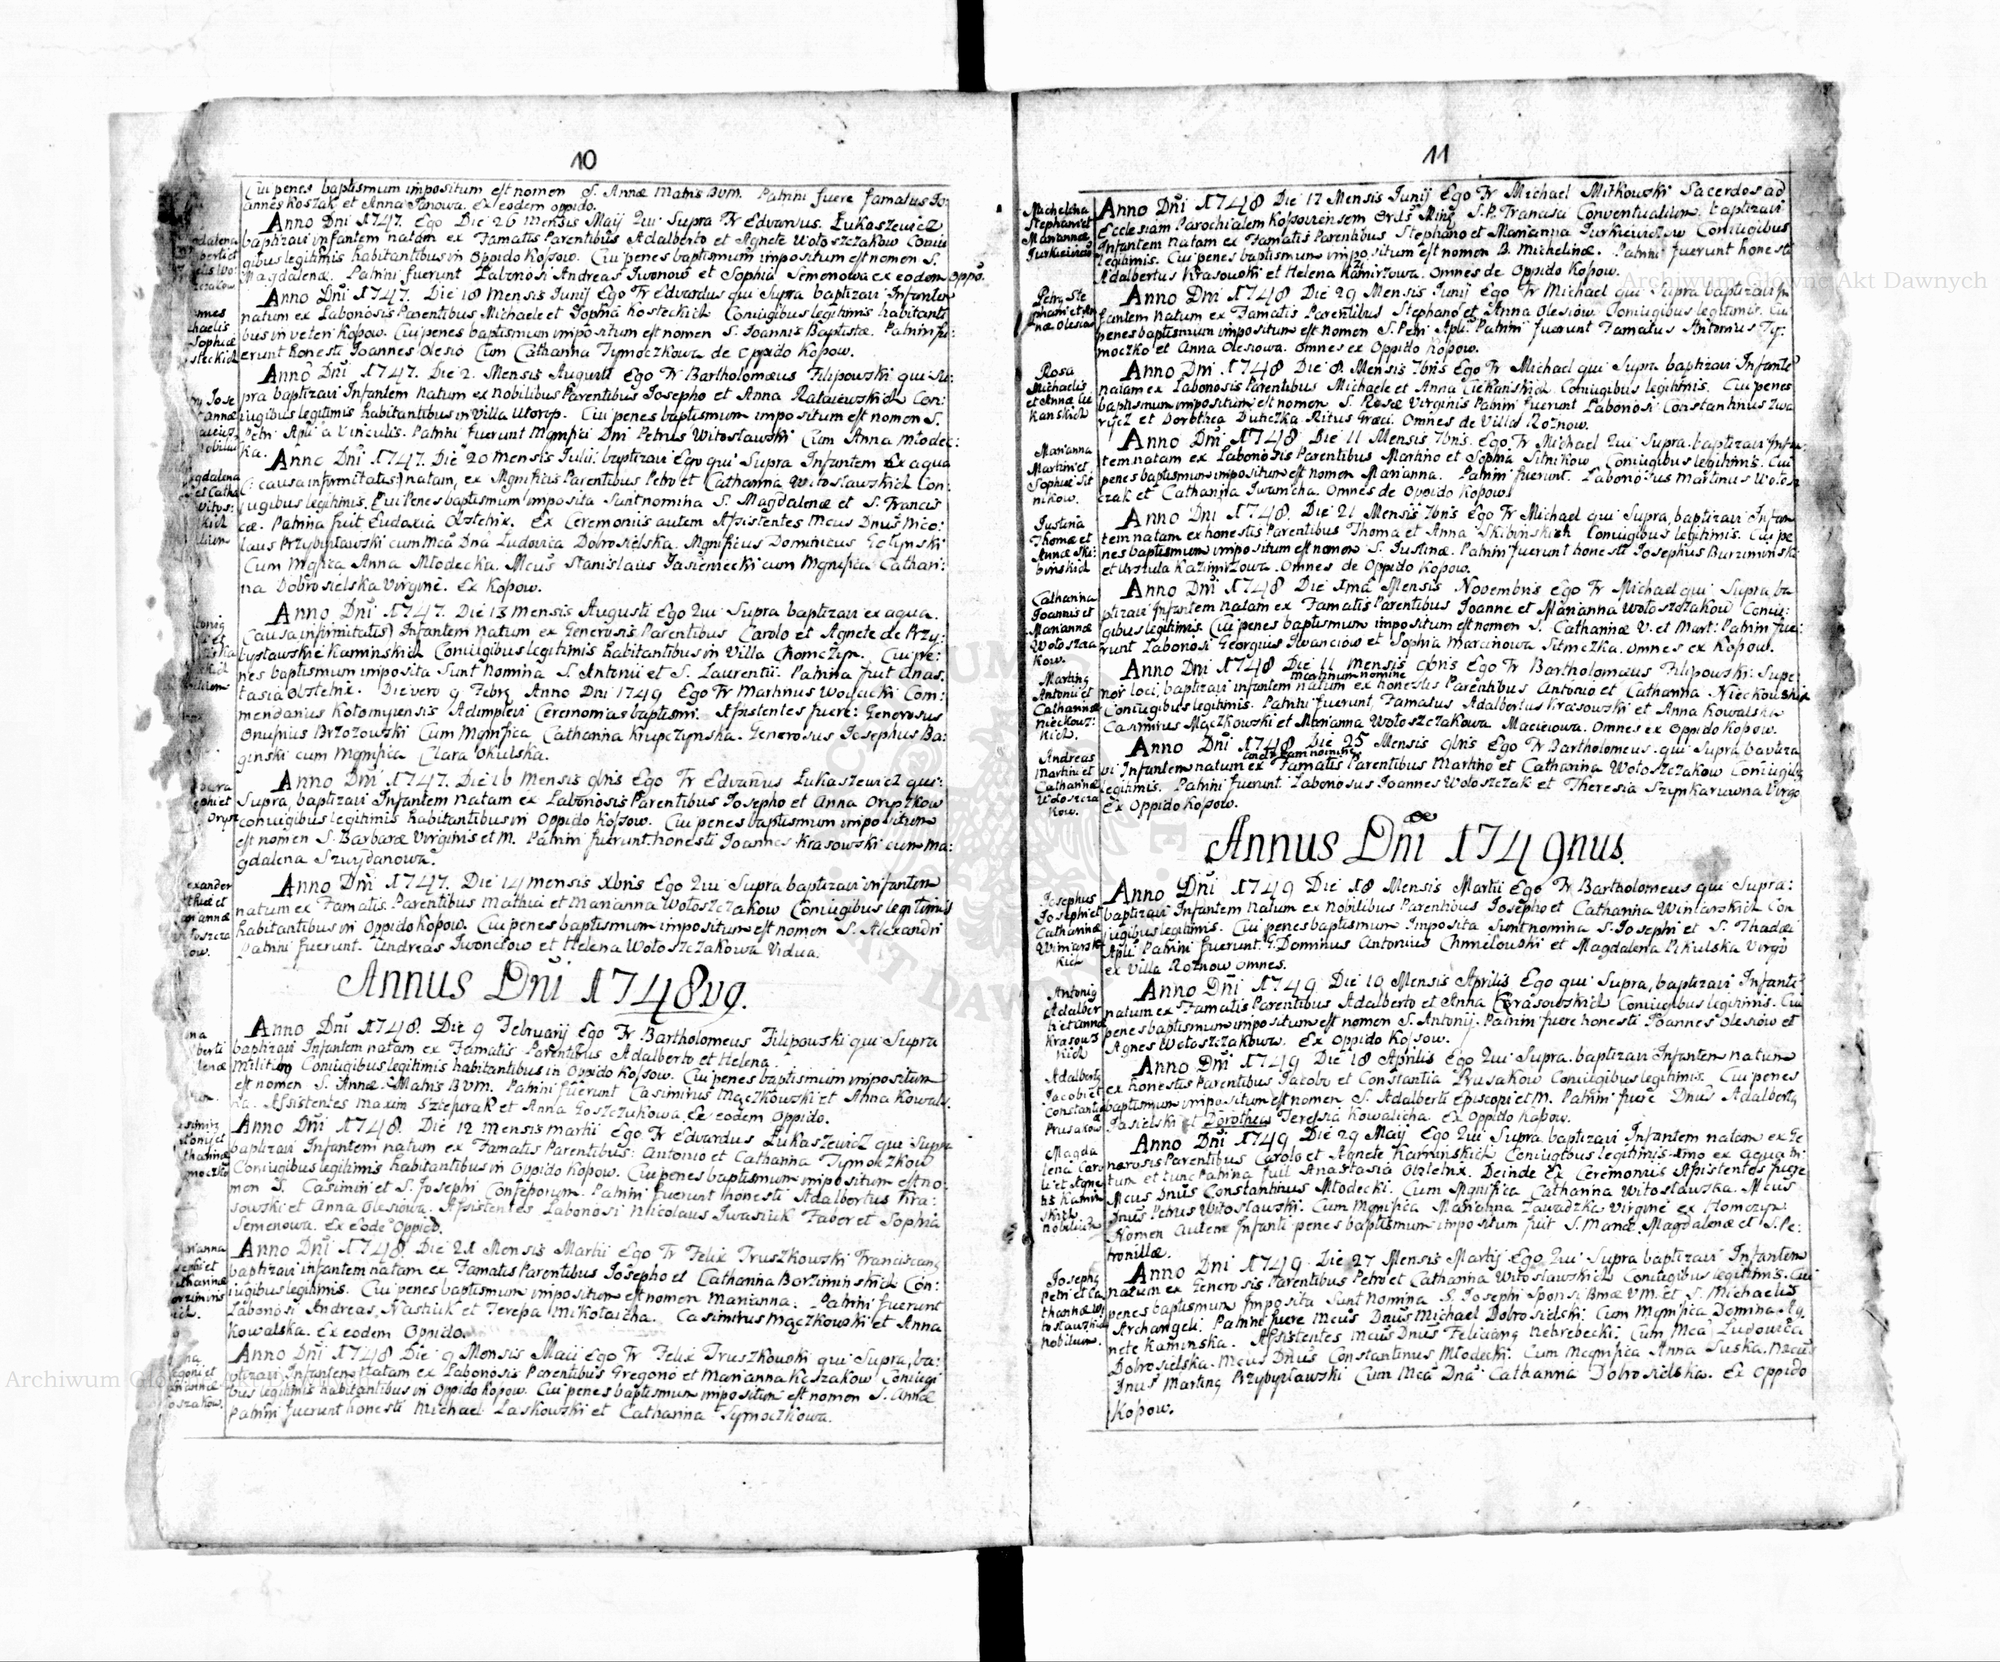 10
Cui penes baptismum impositum est nomen S. Annæ Matris BVM. Patrini fuere famatus Jo:
annes Koszak et Anna Panowa. Ex eodem oppido.
Anno Dni 1747. Ego Die 26 Mensis Maij Qui Supra Fr Edvardus Łukaszewicz
baptizavi infantem natam ex Famatis Parentibus Adalberto et Agnete Wołoszczakow Coniu
gibus legitimis habitantibus in Oppido Kossow. Cui penes baptismum impositum est nomen S.
Magdalenæ. Patrini fuerunt Labriosi Andreas Iwonow et Sophia Semenowa ex eodem Oppido.
Anno Dni 1747. Die 18 Mensis Junij Ego Fr Edvardus qui Supra baptizavi Infantem
natum ex Laboriosis Parentibus Michaele et Sophia Kosteckich Coniugibus legitimis habitanti
bus in veteri Kossow. Cui penes baptismum impositum est nomen S. Joannis Baptistæ. Patrini fu:
erunt honesti Joannes Olesio Cum Catharina Tymoczkowa de Oppido Kossow.
Anno Dni 1747. Die 2. Mensis Augusti Ego Fr Bartholomæus Filipowski qui Su:
pra baptizavi Infantem Natum ex nobilibus Parentibus Josepho et Anna Rataiewskich Con:
iugibus legitimis habitantibus in Villa Utorop. Cui penes baptismum impositum est nomen S.
Petri Apli a Vinculis. Patrini fuerunt Mgnifici Dni Petrus Witosławski Cum Anna Młodec:
ka. Anno Dni 1747. Die 20 Mensis Julii. baptizavi Ego qui Supra Infantem Ex aqua
(: causa infirmitatis:) natam, ex Mgnificis Parentibus Petro et Catharina Witosławskich Con:
iugibus legitimis. Cui Penes baptismum imposita Sunt nomina S. Magdalenæ et S. Francis
cæ. Patrina fuit Eudoxia Obstetrix. Ex Ceremoniis autem Assistentes Mcus Dnus Nico:
laus Przybysławski cum Mca Dna Ludovica Dobrosielska. Mgnificus Dominicus Gołynski
Cum Mgfica Anna Młodecka. Mcus Stanislaus Jasieniecki cum Mgnifica Cathari:
na Dobrosielska Virgine. Ex Kossow.
Anno Dni 1747. Die 13 Mensis Augusti Ego Qui Supra baptizavi ex aqua
(Causa infirmitatis) Infantem Natum ex Generosis Parentibus Carolo et Agnete de Przy:
bysławskie Kaminskich Coniugibus legitimis habitantibus in Villa Chomczyn. Cui pe:
nes baptismum imposita Sunt Nomina S. Antonii et S. Laurentii. Patrina fuit Anas:
tasia Obstetrix. Die vero 9 Febrii Anno Dni 1749 Ego Fr Martinus Woysicki Com:
mendarius Kołomyiensis Adimplevi Ceremonias baptismi. Assistentes fuere: Generosus
Onufrius Brzozowski Cum Mgnifica Catharina Krupczynska. Generosus Josephus Ba:
ginski cum Mgnifica Clara Okulska.
Anno Dni 1747. Die 16 Mensis 9bris Ego Fr Edvardus Łukaszewicz qui:
Supra, baptizavi Infantem natam ex Laboriosis Parentibus Josepho et Anna Oryszkow
coniugibus legitimis habitantibus in Oppido Kossow. Cui penes baptismum impositum
est nomen S. Barbaræ Virginis et M. Patrini fuerunt honesti Joannes Krasowski cum Ma:
gdalena Szwydanowa.
Anno Dni 1747. Die 14 Mensis Xbris Ego Qui Supra baptizavi infantem
natum ex Famatis Parentibus Mathia et Marianna Wołoszczakow Coniugibus legitimis
habitantibus in Oppido Kossow. Cui penes baptismum impositum est nomen S. Alexandri
Patrini fuerunt. Andreas Iwonciow et Helena Wołoszczakowa Vidua.
Annus Dni 1748vg.
Anno Dni 1748. Die 9 Februarij Ego Fr Bartholomeus Filipowski qui Supra
baptizavi Infantem natam ex Famatis Parentibus Adalberto et Helena
Coniugibus legitimis habitantibus in Oppido Kossow. Cui penes baptismum impositum
est nomen S. Annæ Matris BVM. Patrini fuerunt Casimirus Mączkowski et Anna Kowals
ka. Assistentes Maxim Sztefurak et Anna Goszczukowa. Ex eodem Oppido.
Anno Dni 1748. Die 12 Mensis Martii Ego Fr Edvardus Łukaszewicz qui Supra
baptizavi Infantem natum ex Famatis Parentibus: Antonio et Catharina Tymoczkow
Coniugibus legitimis habitantibus in Oppido Kossow. Cui penes baptismum impositum est no:
men S. Casimiri et S. Josephi Confessorum. Patrini fuerunt honesti Adalbertus Kra:
sowski et Anna Olesiowa. Assistentes Laboriosi Nicolaus Iwasiuk Faber et Sophia
Semenowa. Ex Eode Oppido.
Anno Dni 1748. Die 21 Mensis Martii Ego Fr Felix Truszkowski Franciscang
baptizavi infantem natam ex Famatis Parentibus Josepho et Catharina Borziminskich Con:
iugibus legitimis. Cui penes baptismum impositum est nomen Marianna. Patrini fuerunt
Laboriosi Andreas Nastiuk et Teressa Mikołaicha. Casimirus Mączkowski et Anna
Kowalska. Ex eodem Oppido.
Anno Dni 1748 Die 9 Mensis Maii Ego Fr Felix Truszkowski qui Supra, ba:
ptizavi Infantem Natam ex Laboriosis Parentibus Gregorio et Marianna Koszakow Coniugi
bus legitimis habitantibus in Oppido Kossow. Cui penes baptismum impositum est nomen S. Annæ
Patrini fuerunt honesti Michael Laskowski et Catharina Tymoczkowa.
11
Michelina
Stephani et
Mariannæ
Jurkiewicz
Anno Dni 1748 Die 17 Mensis Junij Ego Fr Michael Mitkowski Sacerdos ad
Ecclesiam Parochialem Kossoviensem Ordis Ming S.P. Francisci Conventualium baptizavi
Infantem natam ex Famatis Parentibus Stephano et Marianna Jurkiewiczow Coniugibus
legitimis. Cui penes baptismum impositum est nomen B. Michelinæ. Patrini fuerunt honesti
Adalbertus Krasowski et Helena Kamirzowa. Omnes de Oppido Kossow.
Petrg Ste
phani et An
næ Olesiow
Anno Dni 1748 Die 29 Mensis Junij Ego Fr Michael qui Supra baptizavi In
fantem natum ex Famatis Parentibus Stephano et Anna Olesiow. Coniugibus legitimis. Cui
penes baptismum impositum est nomen S. Petri Apli. Patrini fuerunt Famatus Antonius Ty:
moczko et Anna Olesiowa. Omnes ex Oppido Kossow.
Rosa
Michaelis
et Annæ Cie
kanskich
Anno Dni 1748 Die 8 Mensis 7bris Ego Fr Michael qui Supra baptizavi Infante
natam ex Laboriosis Parentibus Michaele et Anna Ciekanskich Coniugibus legitimis. Cui penes
baptismum impositum est nomen S. Rosæ Virginis Patrini fuerunt Laboriosi Constantinus Zwa
rycz et Dorothea Dutczka Ritus Græci. Omnes de Villa Rożnow.
Marianna
Martini et
Sophiæ Sit
nikow.
Anno Dni 1748 Die 11 Mensis 7bris. Ego Fr Michael Qui Supra baptizavi Infan
tem natam ex Laboriosis Parentibus Martino et Sophia Sitnikow Coniugibus legitimis. Cui
penes baptismum impositum est nomen Marianna. Patrini fuerunt. Laboriosus Martinus Wołos
czak et Catharina Iwanicha. Omnes de Oppido Kossow.
Justina
Thomæ et
Annæ Ski:
binskich
Anno Dni 1748. Die 21 Mensis 7bris Ego Fr Michael qui Supra, baptizavi Infan
tem natam ex honestis Parentibus Thoma et Anna Skibinskich Coniugibus legitimis. Cui pe
nes baptismum impositum est nomen S. Justinæ. Patrini fuerunt honesti Josephus Burziminski
et Ursula Kazimirzowa. Omnes de Oppido Kossow.
Catharina
Joannis et
Mariannæ
Wołoszcza
kow.
Anno Dni 1748 Die 1ma Mensis Novembris Ego Fr Michael qui Supra ba
ptizavi Infantem natam ex Famatis Parentibus Joanne et Marianna Wołoszczakow Coniu:
gibus legitimis. Cui penes baptismum impositum est nomen S. Catharinæ V. et Mart: Patrini fue:
runt Laboriosi Georgius Iwanciow et Sophia Marcinowa Sitniczka. Omnes ex Kossow.
Marting
Antonii et
Catharinæ
Nieckows:
kich.
Anno Dni 1748 Die 11 Mensis 9bris Ego Fr Bartholomæus Filipowski Supe
martinum nomine
rior loci, baptizavi infantem natum ex honestis Parentibus Antonio et Catharina Nieckowskich
Coniugibus legitimis. Patrini fuerunt, Famatus Adalbertus Krasowski et Anna Kowalska
Casimirus Mączkowski et Marianna Wołoszczakowa Macieiowa. Omnes ex Oppido Kossow.
Andreas
Martini et
Catharinæ
Wołoszcza
kow.
Anno Dni 1748 Die 25 Mensis 9bris Ego Fr Bartholomeus qui Supra baptiza
andream nomine
vi Infantem natum ex Famatis Parentibus Martino et Catharina Wołoszczakow Coniugibg
legitimis. Patrini fuerunt. Laboriosus Joannes Wołoszczak et Theresia Szynkaruwna Virgo
Ex Oppido Kossow.
Annus Dni 1749nus.
Josephus
Josephi et
Catharinæ
Winiarsk
kich
Anno Dni 1749 Die 18 Mensis Martii Ego Fr Bartholomeus qui Supra:
baptizavi Infantem Natum ex Nobilibus Parentibus Josepho et Catharina Winiarskich Con
iugibus legitimis. Cui penes baptismum Imposita Sunt nomina S. Josephi et S. Thadæi
Apli. Patrini fuerunt. G. Dominus Antonius Chmelowski et Magdalena Pikulska Virgo
ex Villa Rożnow omnes.
Antonig
Adalber
ti et Annæ
Krasows
kich
Anno Dni 1749. Die 10 Mensis Aprilis Ego qui Supra, baptizavi Infante
natum ex Famatis Parentibus Adalberto et Anna Krasowskich Coniugibus legitimis. Cui
penes baptismum impositum est nomen S. Antonij. Patrini fuere honesti Joannes Olesiow et
Agnes Wołoszczakowa. Ex Oppido Kossow.
Adalbertg
Jacobi et
Constantiæ
Prusakow
Anno Dni 1749 Die 18 Aprilis Ego Qui Supra. baptizavi Infantem natum
ex honestis Parentibus Jacobo et Constantia Prusakow Coniugibus legitimis. Cui penes
baptismum impositum est nomen S. Adalberti Episcopi et M. Patrini fuere Dnus Adalbertg
Jasielski et Dorothea Teresia Kowalicha. Ex Oppido Kossow.
Magda
lena Caro
li et Agne
tis Kamin
skich
nobilium
Anno Dni 1749 Die 29 Maij Ego Qui Supra baptizavi Infantem natam ex Ge
nerosis Parentibus Carolo et Agnete Kaminskich Coniugibus legitimis. imo ex aqua
tum et tunc Patrina fuit Anastasia Obstetrix. Deinde Ex Ceremoniis Assistentes fuere
Mcus Dnus Constantinus Młodecki. Cum Mgnifica Catharina Witosławska. Mcus
Dnus Petrus Witosławski. Cum Mgnifica Marianna Zawadzka Virgine ex Homczyn.
Nomen autem Infanti penes baptismum impositum fuit S. Mariæ Magdalenæ et S. Pe:
tronillæ.
Josephg
Petri et Ca
tharinæ Wi
tosławskich
Nobilium.
Anno Dni 1749. Die 27 Mensis Martij Ego Qui Supra baptizavi Infantem
natum ex Generosis Parentibus Petro et Catharina Witosławskich Coniugibus legitimis. Cui
penes baptismum Imposita Sunt Nomina S. Josephi Sponsi Bmæ VM. et S. Michaelis
Archangeli. Patrini fuere Mcus Dnus Michael Dobrosielski: Cum Mgnifica Domina Ag
nete Kaminska. Assistentes Mcus Dnus Feliciang Nebrebecki. Cum Mca Ludovica
Dobrosielska. Mcus Dnus Constantinus Młodecki. Cum Mcgnifica Anna Suska. Mcus
Dnus Marting Przybysławski Cum Mca Dna Catharina Dobrosielska. Ex Oppido
Kossow.
Archiwum Główne Akt Dawnych